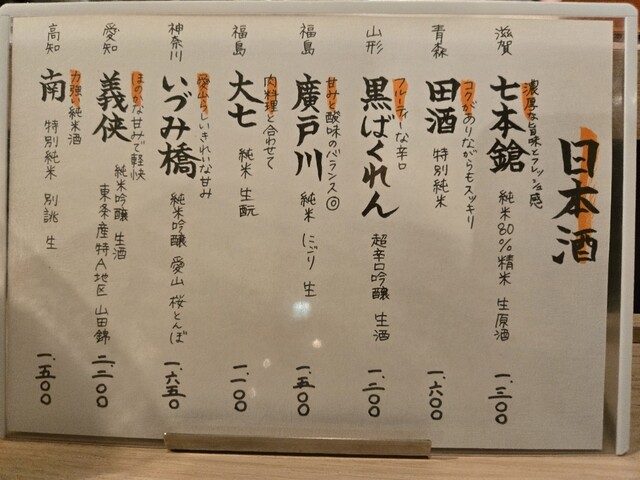 日本酒
滋賀
濃厚な旨味とフレッシュ感
七本鎗
純米80%精米 生原酒
一、三〇〇
青森
コクがありながらもスッキリ
田酒
特別純米
一、六〇〇
山形
フルーティーな辛口
黒ばくれん
超辛口吟醸 生酒
一、二〇〇
福島
甘みと酸味のバランス◎
廣戸川
純米 にごり 生
一、五〇〇
福島
肉料理と合わせて
大七
純米 生酛
一、一〇〇
神奈川
愛山らしいきれいな甘み
いづみ橋
純米吟醸 愛山 桜とんぼ
一、六五〇
愛知
ほのかな甘みで軽快
義侠
純米吟醸 生酒
東条産特A地区 山田錦
二、二〇〇
高知
力強い純米酒
南
特別純米 別誂 生
一、五〇〇